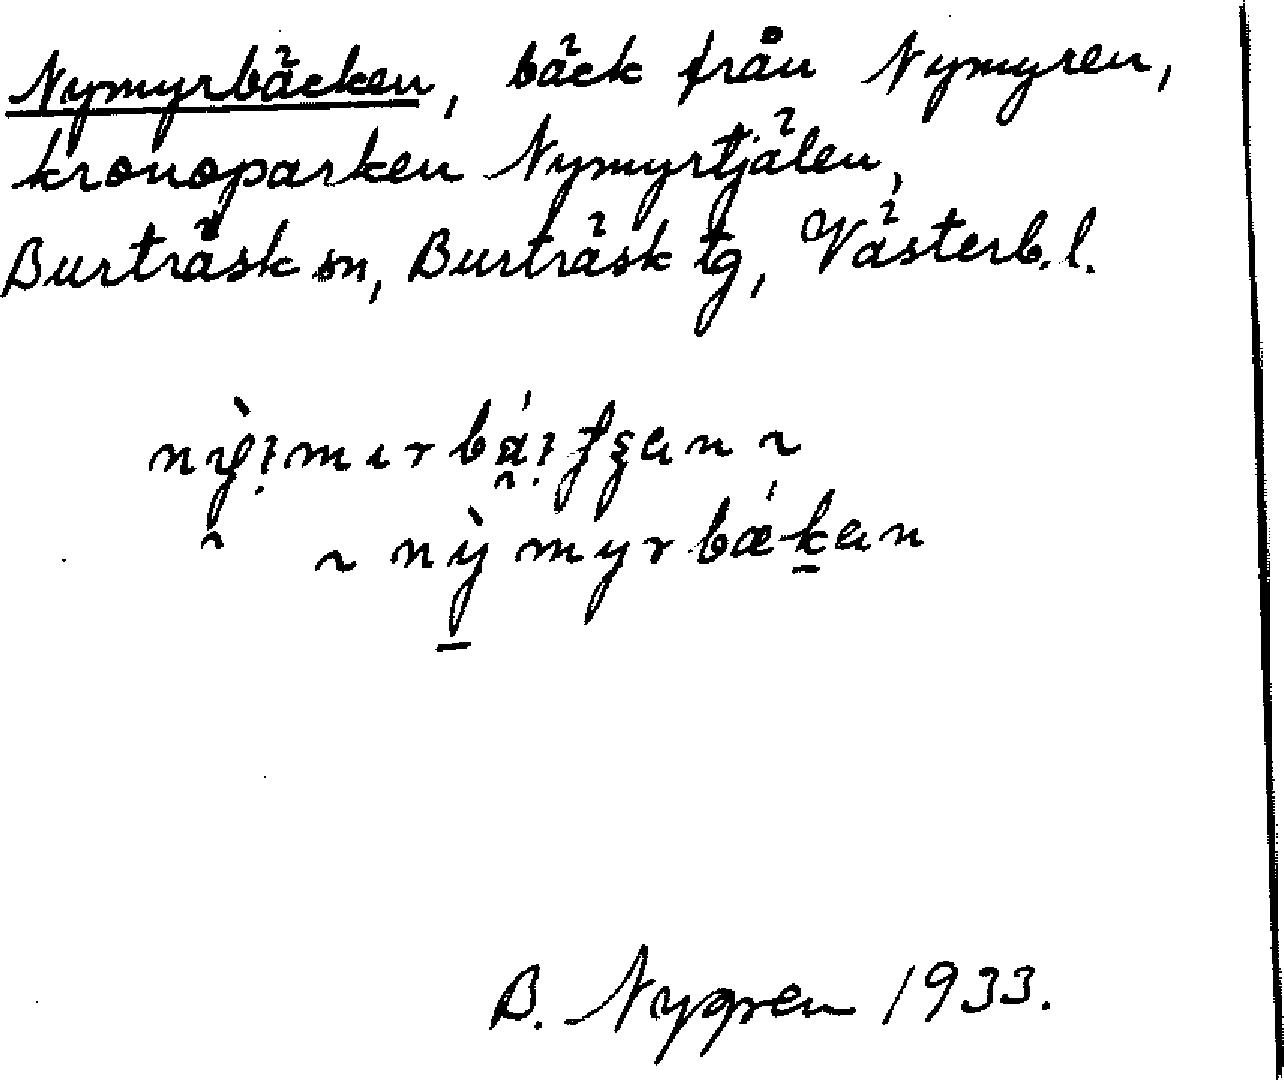 Nymyrbäcken, bäck från Nymyren,
kronoparken Nymyrtjälen,
Burträsk sn, Burträsk tg, Västerb. l.
~ nỳmyrbǽkan
B. Nygren 1933.